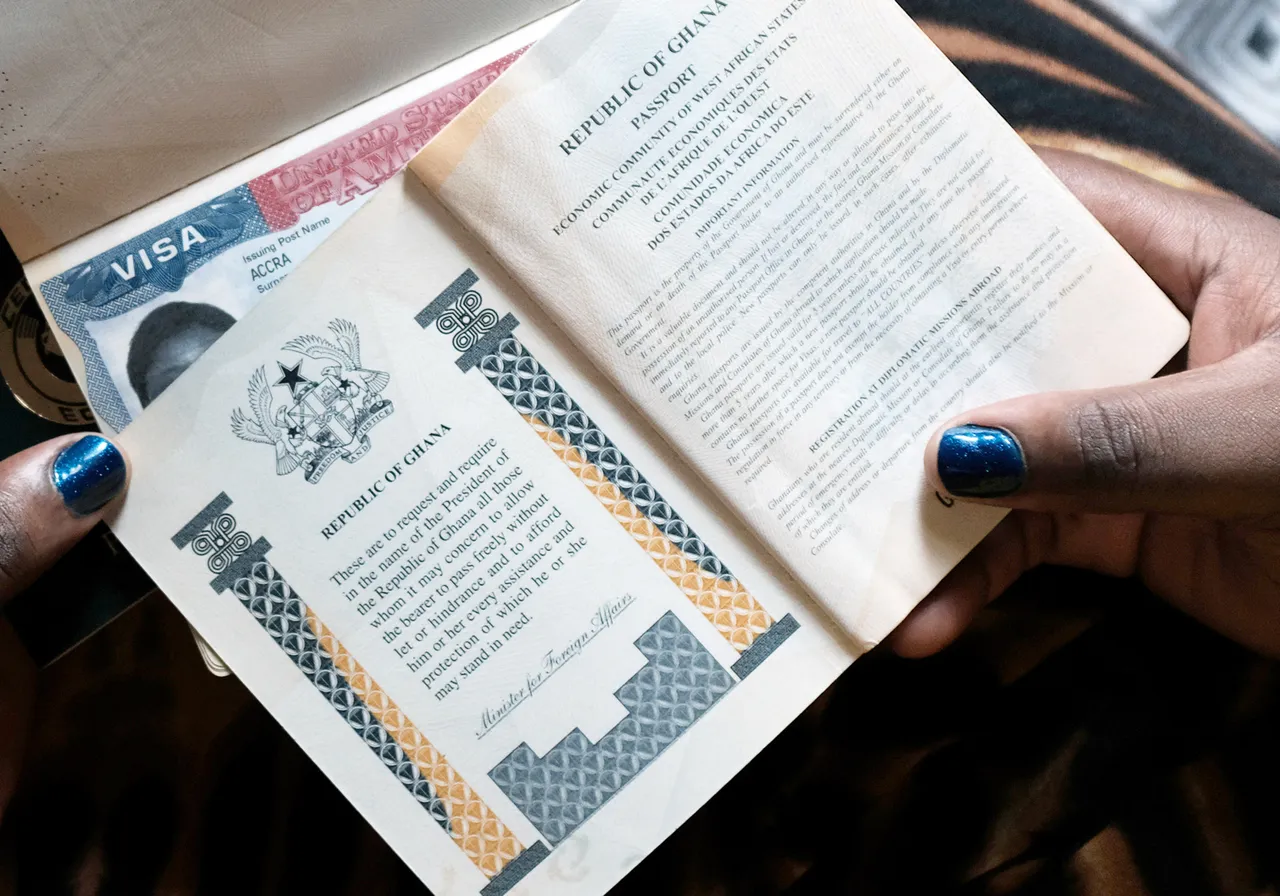 UNITED STATES
OF AMER
VISA
Issuing Post Name
ACCRA
Surna
REPUBLIC OF GHANA
These are to request and require
in the name of the President of
the Republic of Ghana all those
whom it may concern to allow
the bearer to pass freely without
let or hindrance and to afford
him or her every assistance and
protection of which he or she
may stand in need.
Minister for Foreign Affairs
REPUBLIC OF GHANA
PASSPORT
ECONOMIC COMMUNITY OF WEST AFRICAN STATES
COMMUNAUTE ECONOMIQUES DES ETATS
DE L'AFRIQUE DE L'OUEST
COMUNIDADE ECONOMICA
DOS ESTADOS DA AFRICA DO ESTE
IMPORTANT INFORMATION
This passport is the property of the Government of Ghana and must be surrendered either on
demand or on death of the Passport holder to an authorised representative of the Ghana
Government.
It is a valuable document and should not be altered in any way or allowed to pass into the
possession of an unauthorised person. If lost or destroyed, the fact and circumstances should be
immediately reported to any Passport Office in Ghana, or the nearest Ghana Mission or Consulate
and to the local police. New passports can only be issued, in such cases, after exhaustive
enquiries.
Ghana passports are issued by the competent authorities in Ghana and by the Diplomatic
Missions and Consulates of Ghana abroad to which application should be made.
Ghana passports are issued for 5 years unless otherwise indicated. They are not valid for
more than 5 years after which a new passport should be obtained. If at any time, the passport
contains no further space for Visas, a new passport should be obtained.
Ghana passports are available for travel to ALL COUNTRIES unless otherwise indicated
The possession of a passport does not exempt the holder from compliance with any immigration
regulation in force in any territory or from the necessity of obtaining a Visa or entry permit where
required.
REGISTRATION AT DIPLOMATIC MISSIONS ABROAD
Ghanaians who are resident abroad should at the earliest opportunity register their names and
addresses at the nearest Diplomatic Mission or Consulate of Ghana. Failure to do so may in a
period of emergency result in difficulty or delay in according them the assistance and protection
of which they are entitled.
Changes of address or departure from the country should also be notified to the Mission or
Consulate.